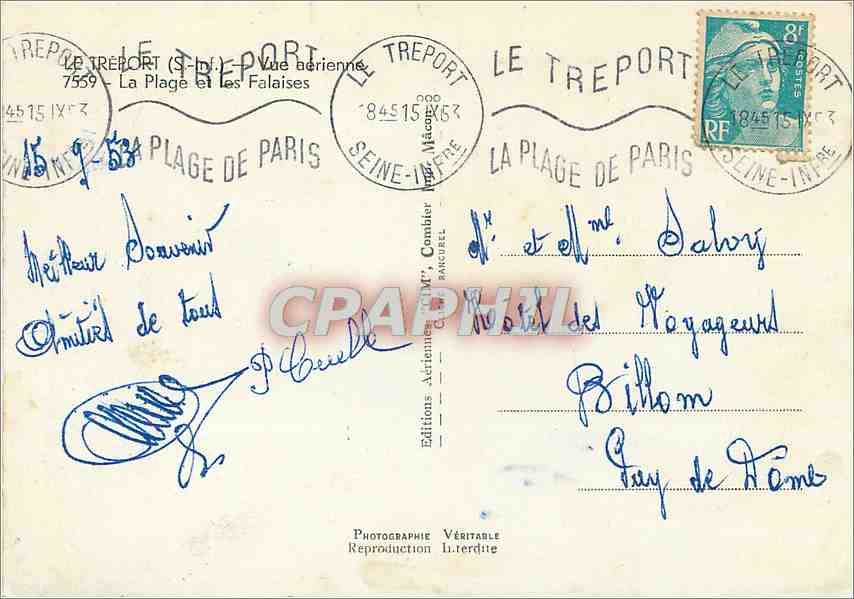 LE TRÉPORT (S.-Inf.) — Vue aérienne
7559 - La Plage et les Falaises
LE TREPORT
18 45 15 IX 53
SEINE-INFRE
LE TREPORT
LA PLAGE DE PARIS
LE TREPORT
18 45 15 IX 53
SEINE-INFRE
LE TREPORT
LA PLAGE DE PARIS
LE TREPORT
18 45 15 IX 53
SEINE-INFRE
8F
POSTES
RF
15-9-53
Meilleur Souvenir
Amitiés de tous
Editions Aériennes "CIM", Combier Imp. Mâcon
CLICHÉ RANCUREL
Mr. et Mme.
Hotel des Voyageurs
Billom
Puy de Dôme
CPAPHIL
PHOTOGRAPHIE VÉRITABLE
Reproduction Interdite